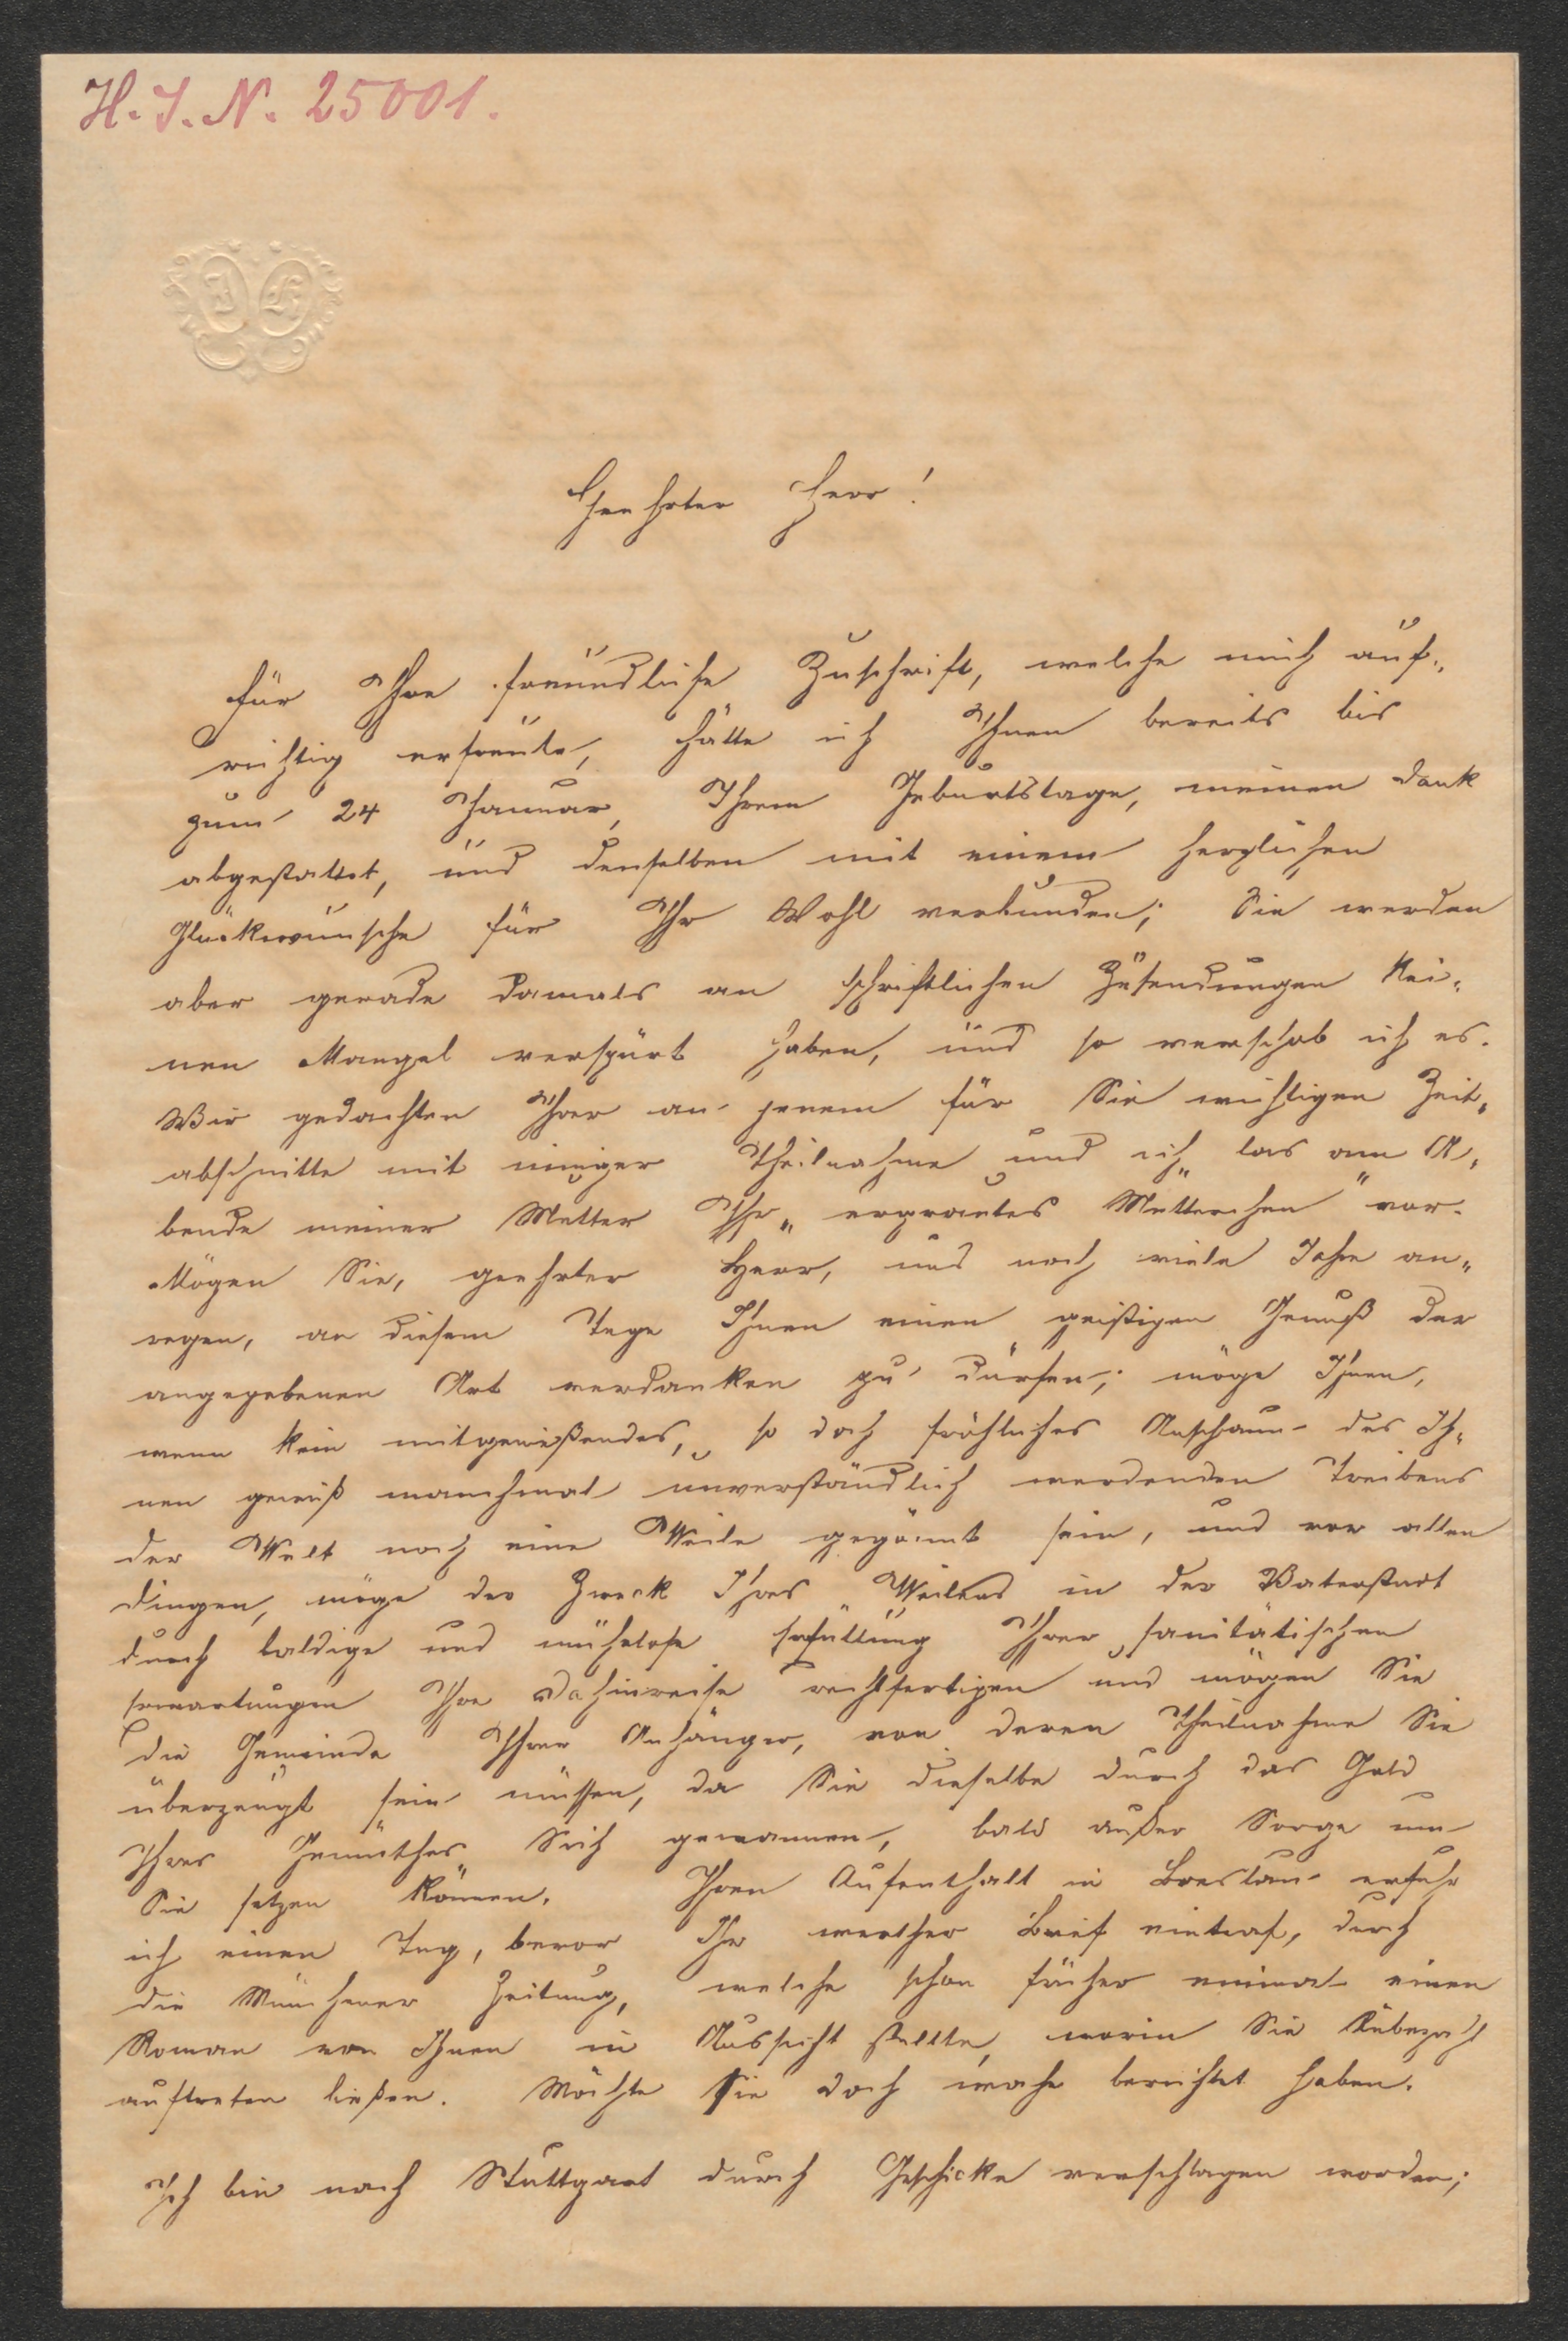 H. I. N. 25001.
Geehrter Herr!
Für Ihre freundliche Zuschrift, welche mich auf„
richtig erfreute, hätte ich Ihnen bereits bis
zum 24 Januar, Ihrem Geburtstage, meinen Dank
abgestattet, und denselben mit einem herzlichen
Glückwunsche für Ihr Wohl verbunden; Sie werden
aber gerade damals an schriftlichen Zusendungen kei„
nen Mangel verspürt haben, und so verschob ich es.
Wir gedachten Ihrer an jenem für Sie wichtigen Zeit„
abschnitte mit inniger Theilnahme und ich las am A„
bende meiner Mutter Ihr „ergrautes Mütterchen" vor.
Mögen Sie, geehrter Herr, uns noch viele Jahre an„
regen, an diesem Tage Ihnen einen geistigen Genuß der
angegebenen Art verdanken zu dürfen; möge Ihnen,
wenn kein mitgenießendes, so doch fröhliches Anschaun des Ih„
nen gewiß manchmal unverständlich werdenden Treibens
der Welt noch eine Weile gegönnt sein, und vor allen
Dingen, möge der Zweck Ihres Weilens in der Vaterstadt
durch baldige und mühelose Erfüllung Ihrer sanitätischen
Erwartungen Ihre Dahinreise rechtfertigen und mögen Sie
die Gemeinde Ihrer Anhänger, von deren Theilnahme Sie
überzeugt sein müssen, da Sie dieselbe durch das Gold
Ihres Gemüthes Sich gewannen, bald außer Sorge um
Sie setzen können. Ihren Aufenthalt in Breslau erfuhr
ich einen Tag, bevor Ihr werther Brief eintraf, durch
die Münchener Zeitung, welche schon früher einmal einen
Roman von Ihnen in Aussicht stellte, worin Sie Rübezahl
auftreten ließen. Möchte sie doch wahr berichtet haben.
Ich bin nach Stuttgart durch Geschicke verschlagen worden;